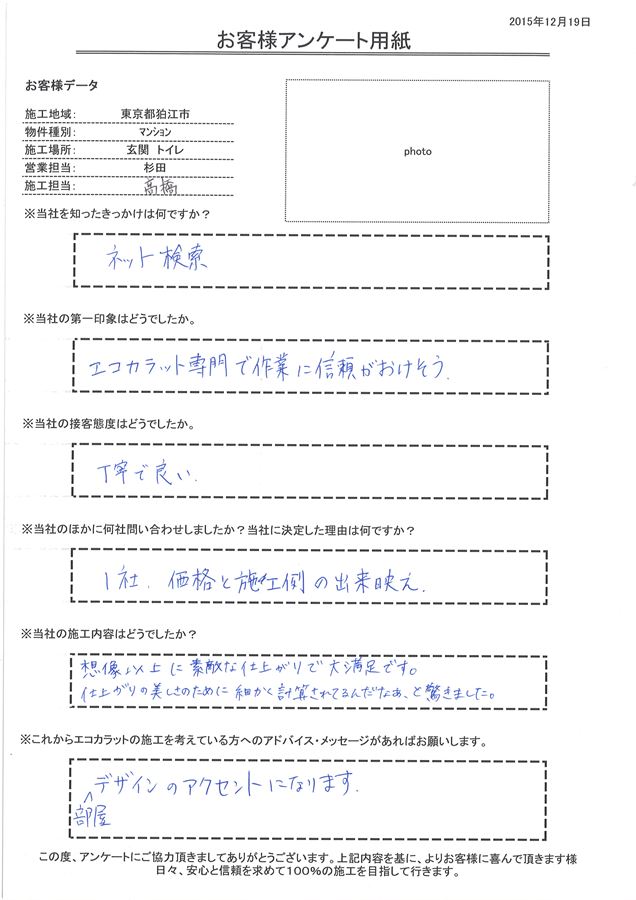 2015年12月19日
お客様アンケート用紙
お客様データ
施工地域: 東京都狛江市
物件種別: ﾏﾝｼｮﾝ
施工場所: 玄関 トイレ
営業担当: 杉田
施工担当: 高橋
photo
※当社を知ったきっかけは何ですか?
ネット検索
※当社の第一印象はどうでしたか。
エコカラット専門で作業に信頼がおけそう.
※当社の接客態度はどうでしたか。
丁寧で良い.
※当社のほかに何社問い合わせしましたか?当社に決定した理由は何ですか?
1社. 価格と施工例の出来映え.
※当社の施工内容はどうでしたか?
想像以上に素敵な仕上がりで大満足です。
仕上がりの美しさのために細かく計算されてるんだなぁ、と驚きました。
※これからエコカラットの施工を考えている方へのアドバイス・メッセージがあればお願いします。
部屋デザインのアクセントになります.
この度、アンケートにご協力頂きましてありがとうございます。上記内容を基に、よりお客様に喜んで頂きます様
日々、安心と信頼を求めて100%の施工を目指して行きます。